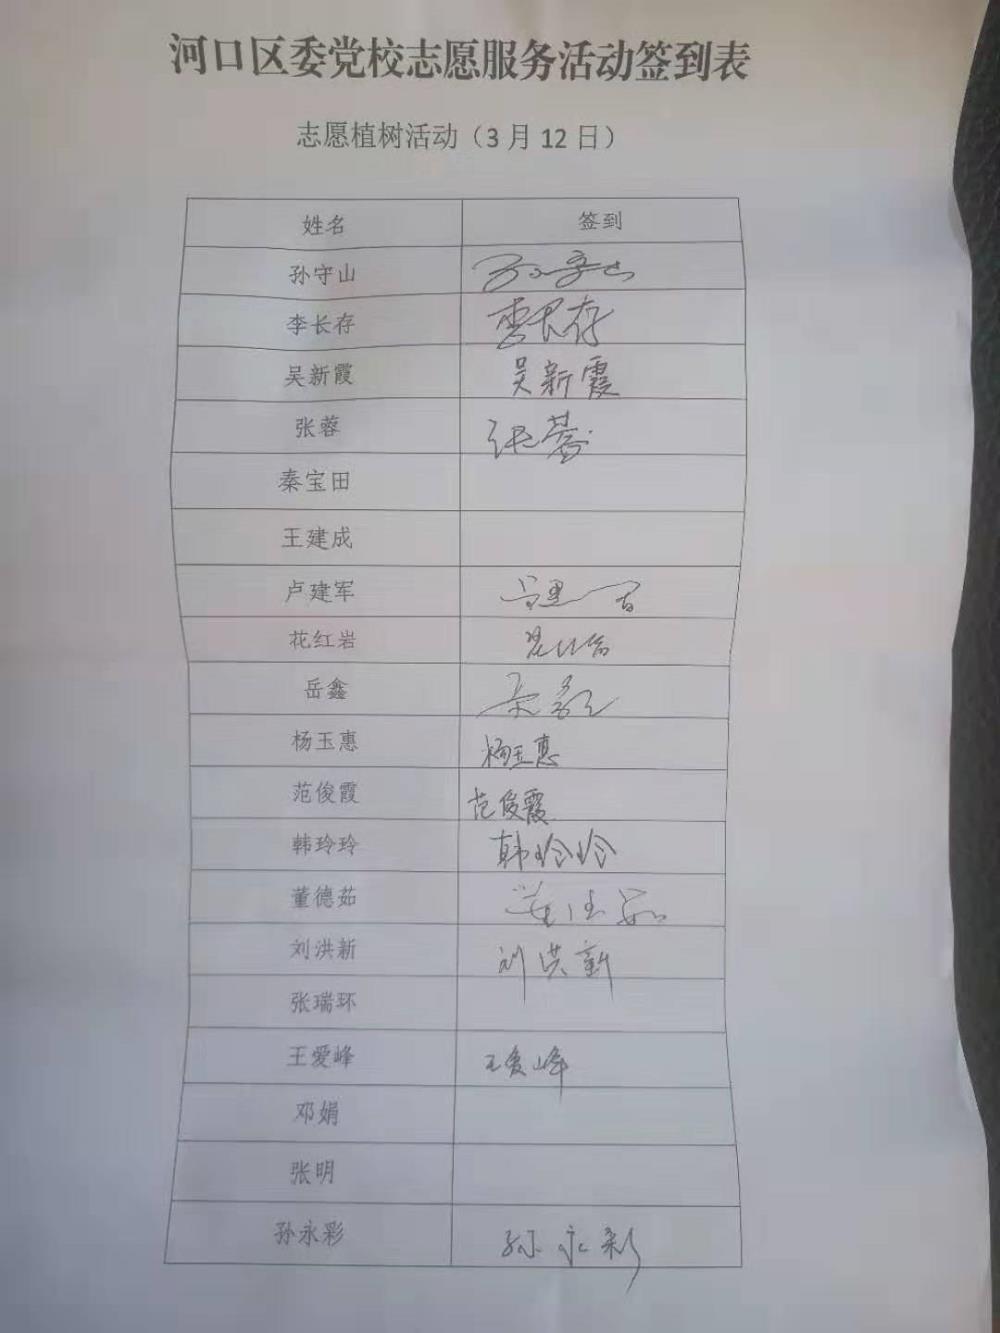 河口区委党校志愿服务活动签到表
志愿植树活动（3月12日）
姓名 签到
孙守山 孙守山
李长存 李长存
吴新霞 吴新霞
张蓉 张蓉
秦宝田
王建成
卢建军
花红岩
岳鑫
杨玉惠 杨玉惠
范俊霞 范俊霞
韩玲玲 韩玲玲
董德茹 董德茹
刘洪新 刘洪新
张瑞环
王爱峰 王爱峰
邓娟
张明
孙永彩 孙永彩